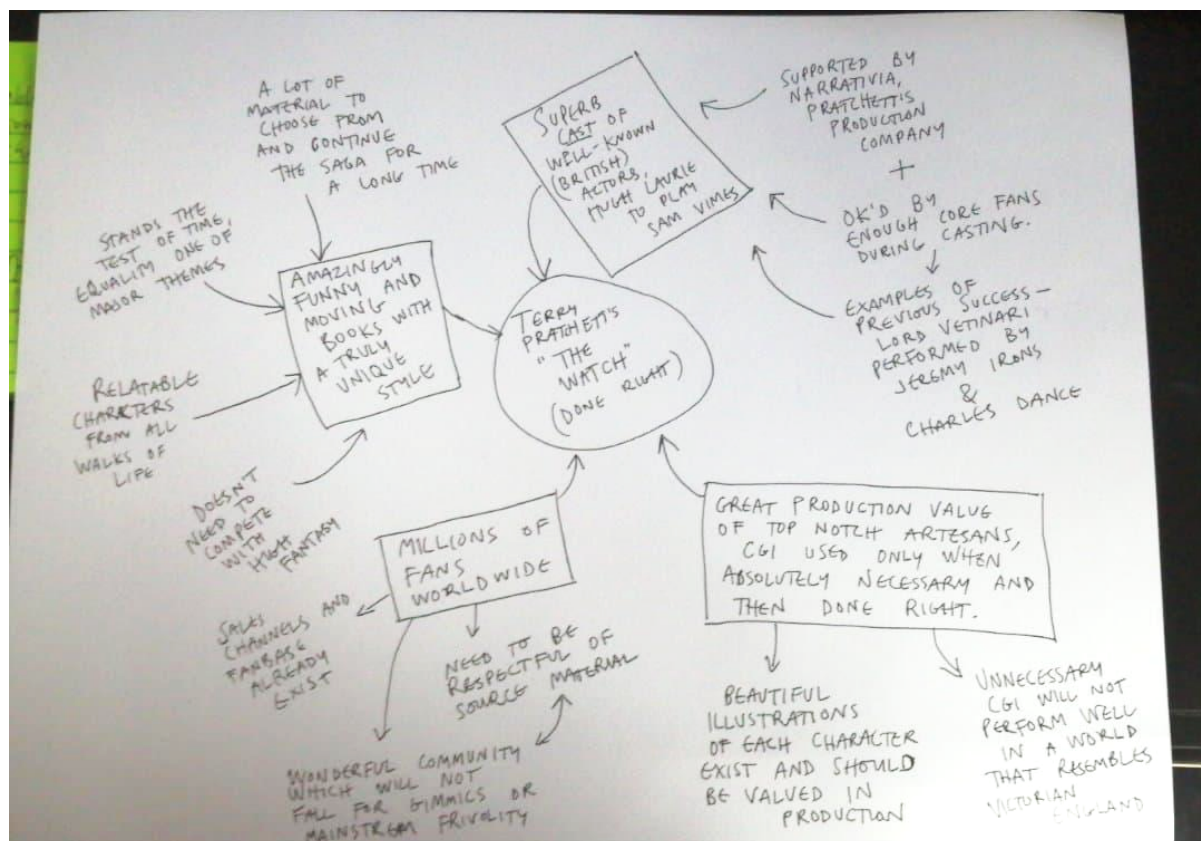 A LOT OF
MATERIAL TO
CHOOSE FROM
AND CONTINUE
THE SAGA FOR
A LONG TIME
STANDS THE
TEST OF TIME,
EQUALITY ONE OF
MAJOR THEMES
RELATABLE
CHARACTERS
FROM ALL
WALKS OF
LIFE
DOESN'T
NEED TO
COMPETE
WITH
HIGH
FANTASY
AMAZINGLY
FUNNY AND
MOVING
BOOKS WITH
A TRULY
UNIQUE
STYLE
SUPERB
CAST OF
WELL-KNOWN
(BRITISH)
ACTORS,
HUGH LAURIE
TO PLAY
SAM VIMES
SUPPORTED BY
NARRATIVIA,
PRATCHETT'S
PRODUCTION
COMPANY
+
OK'D BY
ENOUGH CORE FANS
DURING CASTING.
EXAMPLES OF
PREVIOUS SUCCESS-
LORD VETINARI
PERFORMED BY
JEREMY IRONS
&
CHARLES DANCE
TERRY
PRATCHETT'S
"THE
WATCH"
(DONE RIGHT)
MILLIONS OF
FANS
WORLDWIDE
SALES
CHANNELS AND
FANBASE
ALREADY
EXIST
NEED TO BE
RESPECTFUL OF
SOURCE MATERIAL
WONDERFUL COMMUNITY
WHICH WILL NOT
FALL FOR GIMMICS OR
MAINSTREAM FRIVOLITY
GREAT PRODUCTION VALUE
OF TOP NOTCH ARTESANS,
CGI USED ONLY WHEN
ABSOLUTELY NECESSARY AND
THEN DONE RIGHT.
BEAUTIFUL
ILLUSTRATIONS
OF EACH CHARACTER
EXIST AND SHOULD
BE VALUED IN
PRODUCTION
UNNECESSARY
CGI WILL NOT
PERFORM WELL
IN A WORLD
THAT RESEMBLES
VICTORIAN
ENGLAND